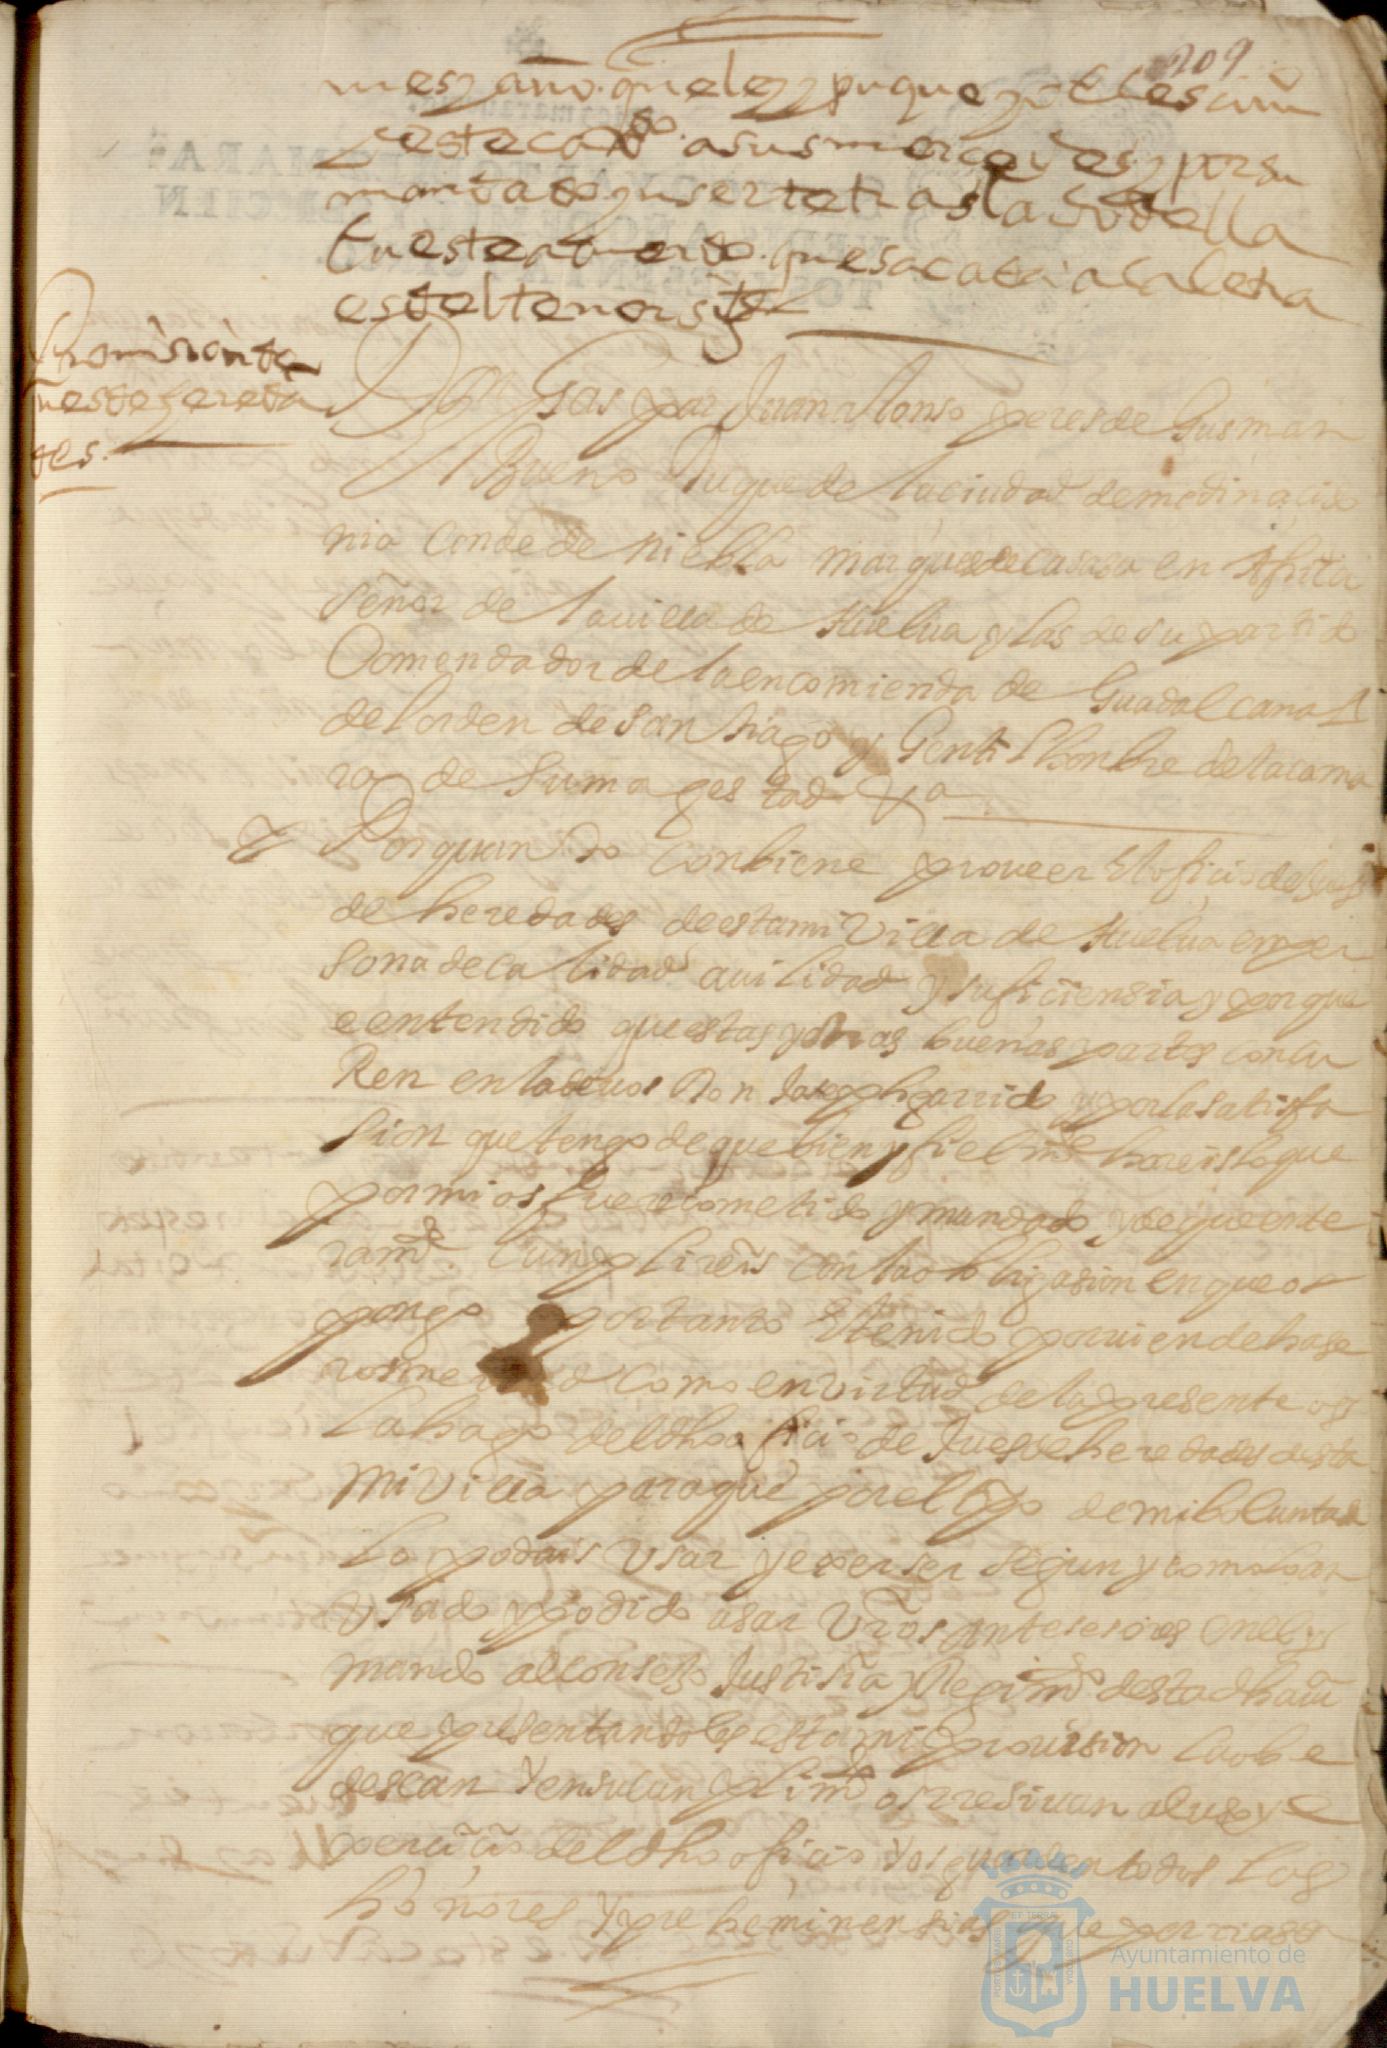 209
mes y año. que ley y puque y oteles aun
y este cavdo. a sus mercedes y por su
mandado ynserte traslado della
en este acuerdo. que sacada a la letra
es del tenor sigte
Provision de
jues de hereda
des.
Don Gaspar Juan alonso peres de Gusman
Bueno Duque de la ciudad de medina sido
nia conde de niebla marques de casasa en Africa
Señor de la villa de Huelua y las de su partido
Comendador de la encomienda de Guadalcanal
del orden de san tiago y Gentil honbre de la cama
ra de su magestad &a
Por quando conbiene proveer El oficio de Jues
de heredades de esta mi Villa de Huelua en per
sona de calidad auilidad y suficiensia y por que
e entendido que estas y otras buenas partes concu
Ren en la de vos Don Joseph garrido y por la satisfa
sion que tengo de que bien y fielmte hareis lo que
por mi os fuere cometido y mandado y de que ente
ramte cunplireis con la obligasion en que os
pongo por tanto E tenido por vien de hase
ros merced como en virtud de la presente os
la hago del dho oficio de Jues de heredades desta
mi Villa para que por el tpo de mi boluntad
lo podais Usar y exerser segun y como lo an
Usado y podido usar Vros antesesores en el y
mando al consejo Justisia y Regimto desta dha villa
que presentandoles esta mi provision la obe
descan y en su cunplimto os rresivan al uso y e
xersisio del dho oficio y os guarden todos los
honores y preheminensias que por rason
Ayuntamiento de
HUELVA